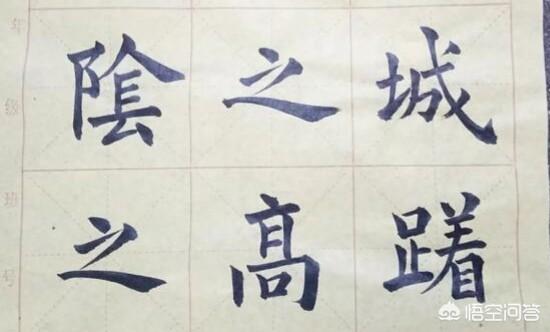 城之陰
躇高之
年级
班号
悟空问答